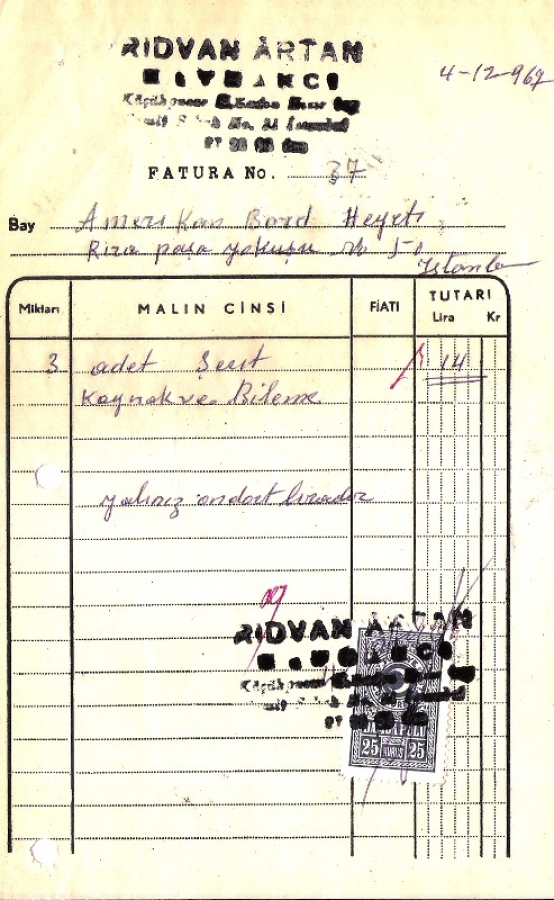 RIDVAN ARTAN
4-12-969
Küçükpazar
FATURA No. 37
Bay Amerikan Bord Heyeti
Rıza paşa yokuşu No 50
İstanbul
Miktarı MALIN CİNSİ FİATI TUTARI
Lira Kr
3 adet Şerit 14
Kaynak ve Bileme
yalnız ondört liradır
RIDVAN ARTAN
Küçükpazar
DAMGA PULU
25 KURUŞ 25